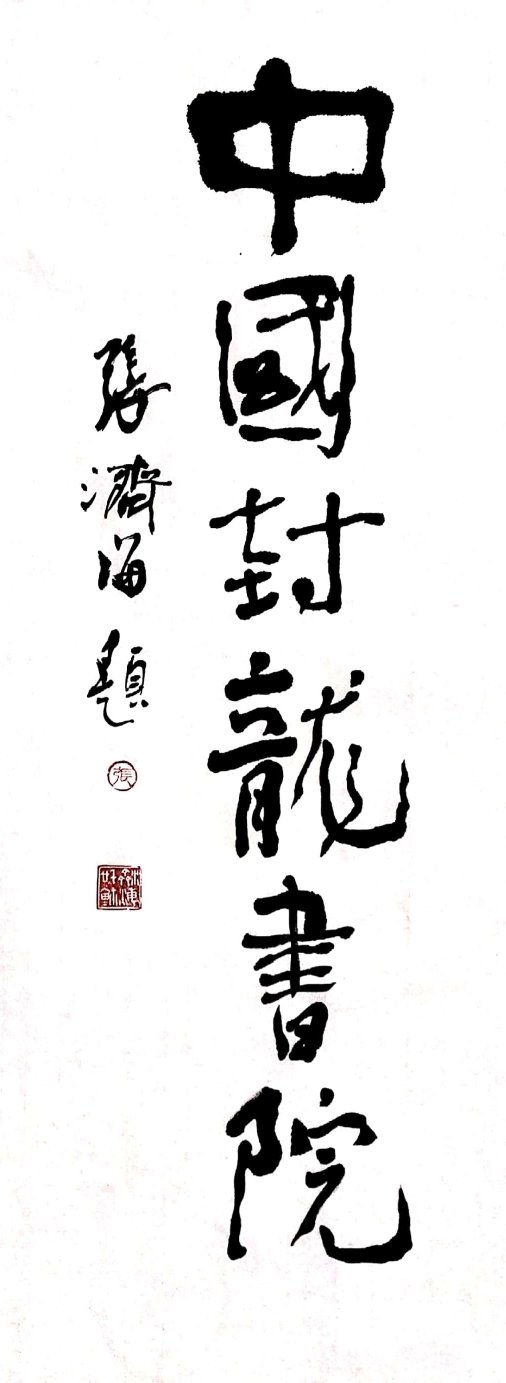 中國封龍書院
張濟海題
張